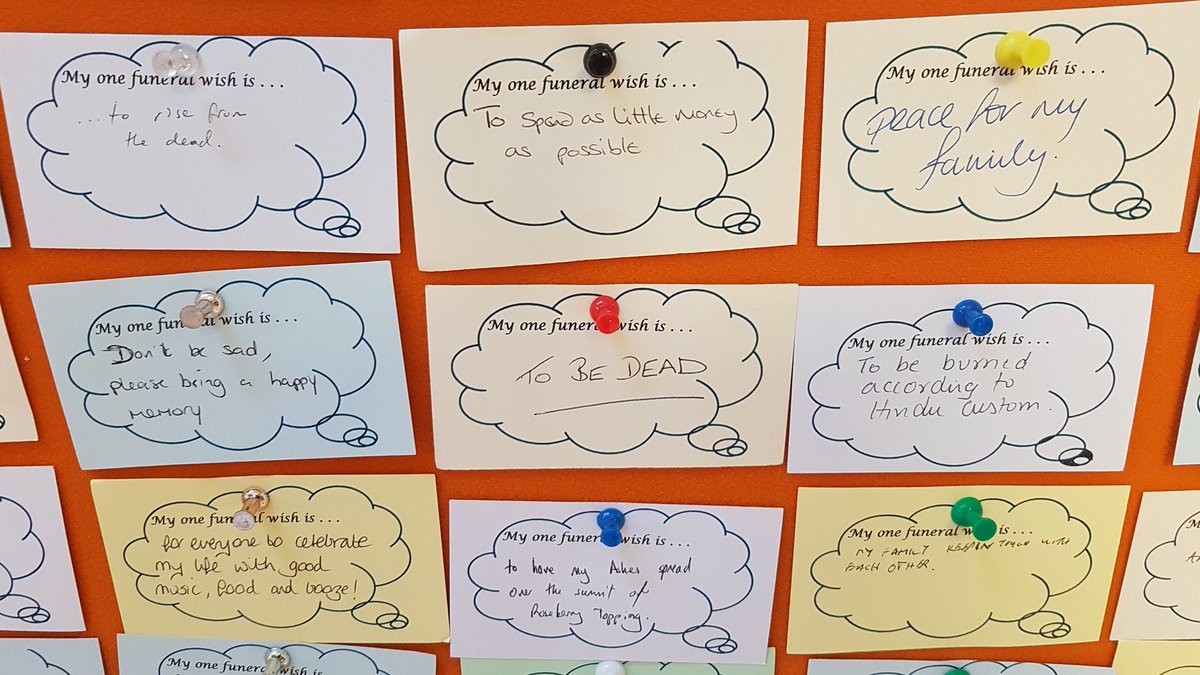 My one funeral wish is . . .
... to rise from
the dead.
My one funeral wish is . . .
To Spend as Little Money
as possible
My one funeral wish is . . .
peace for my
family.
My one funeral wish is . . .
Don't be sad,
please bring a happy
memory
My one funeral wish is . . .
TO BE DEAD
My one funeral wish is . . .
To be burned
according to
Hindu Custom.
My one funeral wish is . . .
for everyone to celebrate
my life with good
music, food and booze!
My one funeral wish is . . .
to have my Ashes spread
over the summit of
Roseberry Topping.
My one funeral wish is . . .
MY FAMILY KEEP IN TOUCH WITH
EACH OTHER.
My one funeral wish is . . .